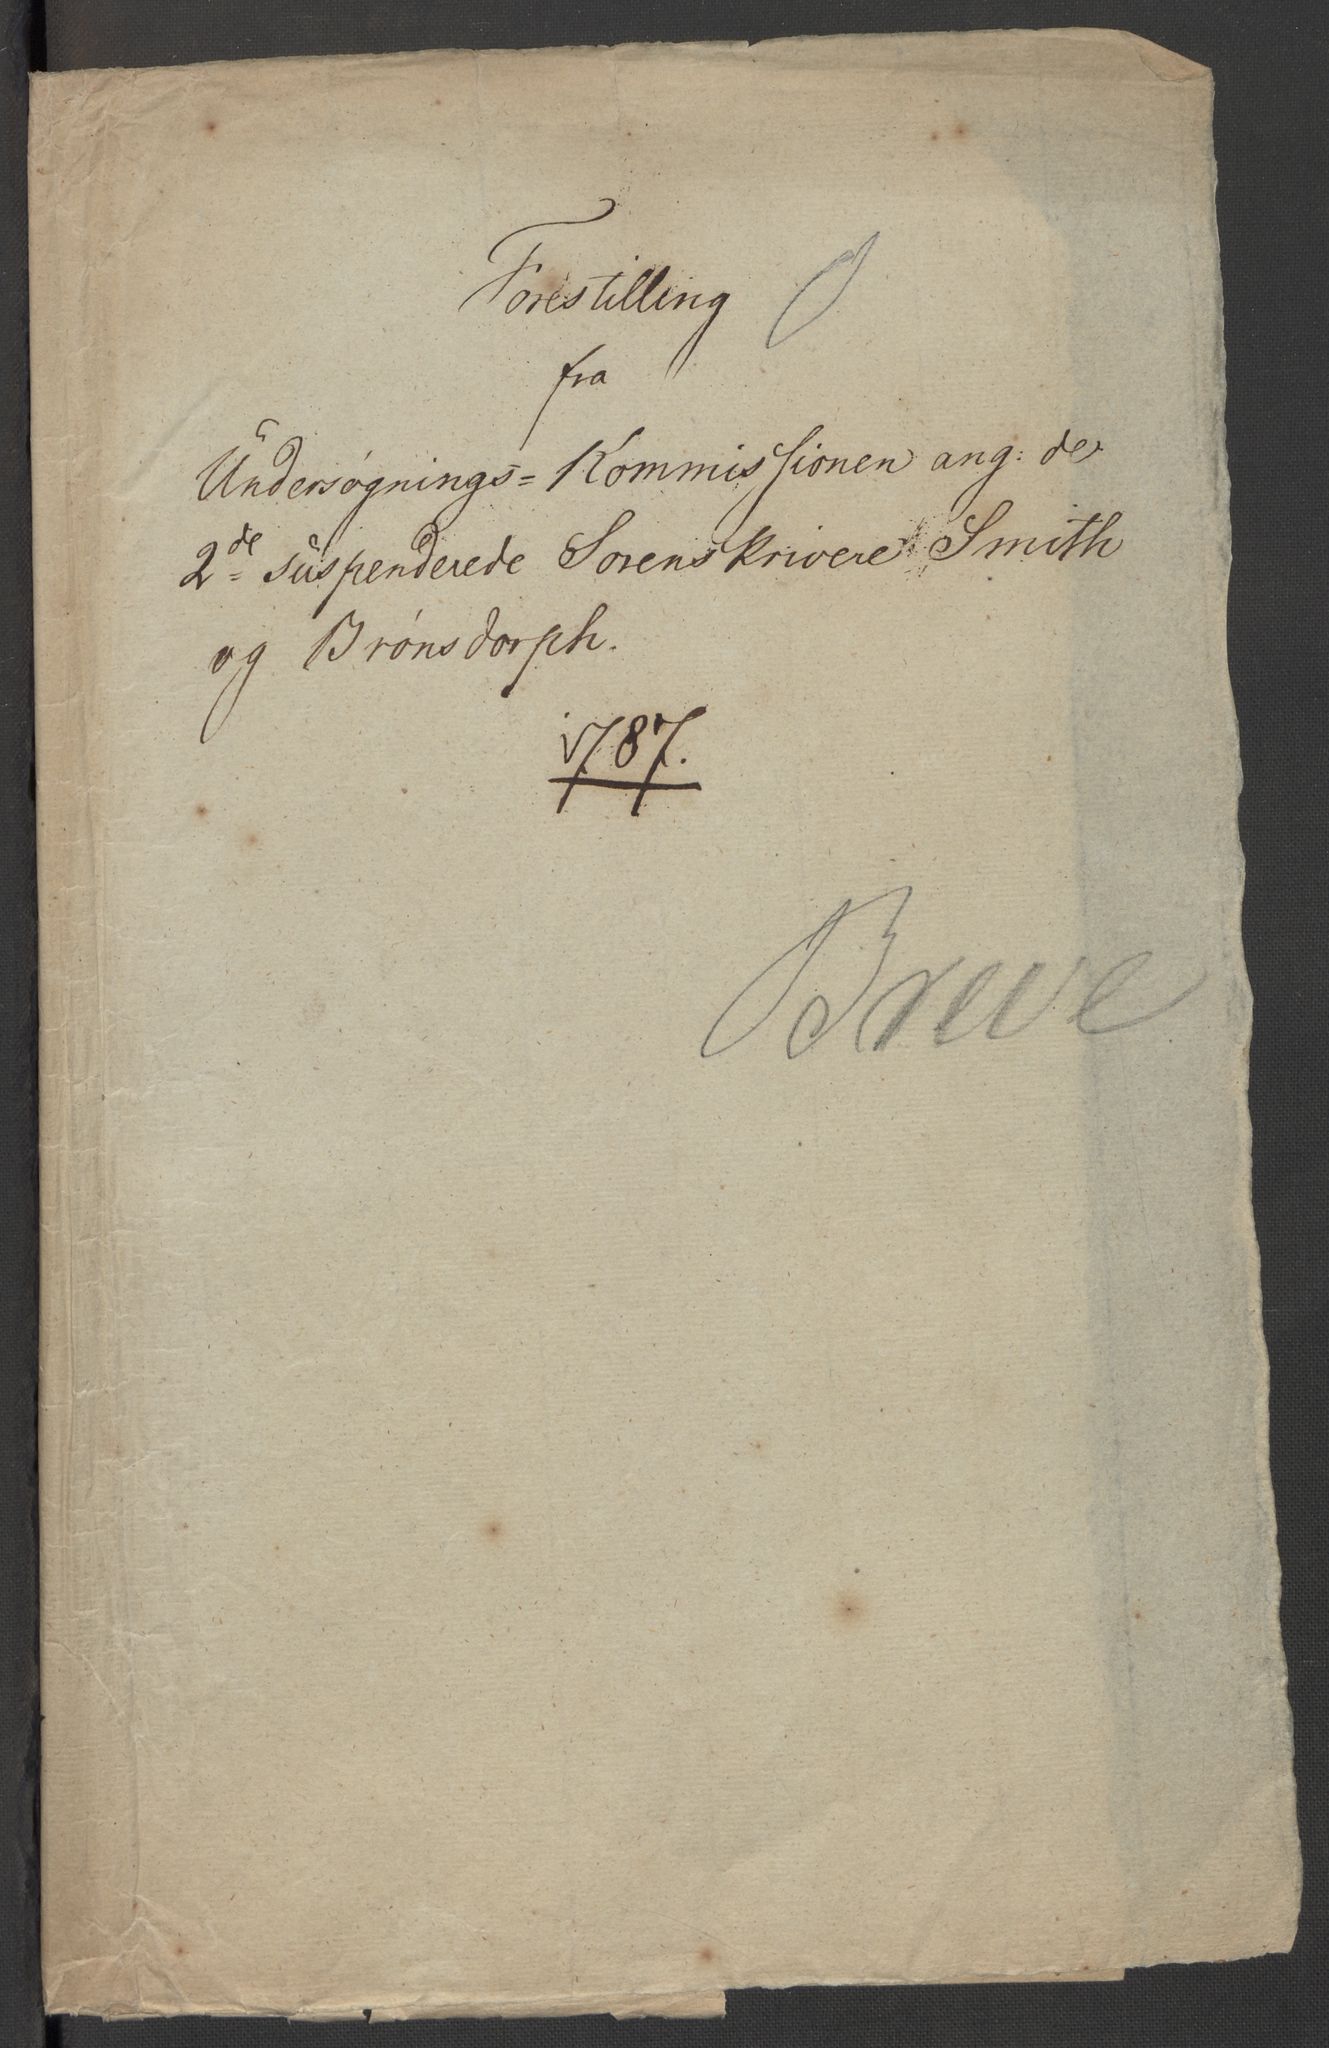 Forestilling
fra
Undersøgnings= Kommissionen ang: de
2de suspenderede Sorenskrivere Smith
og Brønsdorph.
1787.
Breve